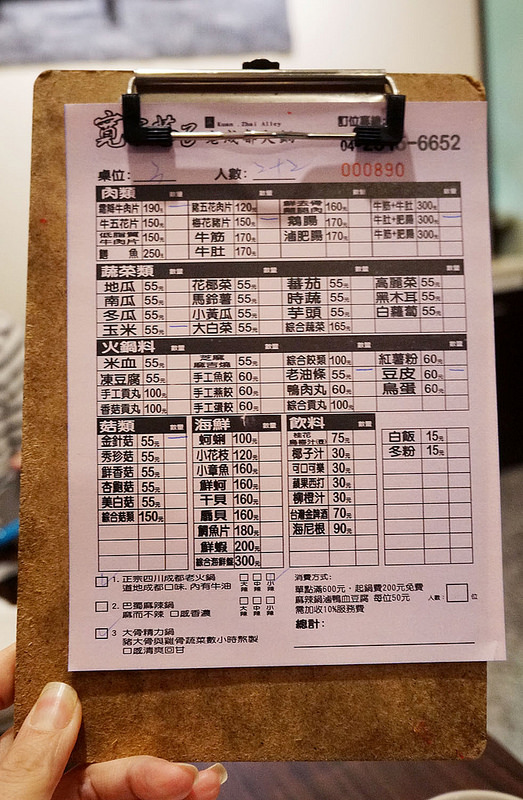 Kuan Zhai Alley 訂位專線
-6652
桌位: 3 人數: 2+2 000890
肉類 數量 數量 數量 數量
霜降牛肉片 190元 豬五花肉片 120元 160元 牛筋+牛肚 300元
牛五花片 150元 梅花豬片 150元 鴨腸 170元 牛肚+肥腸 300元
低脂質牛肉片 150元 牛筋 170元 滷肥腸 170元 牛筋+肥腸 300元
魚 250元 牛肚 170元
蔬菜類 數量 數量 數量 數量
地瓜 55元 花椰菜 55元 番茄 55元 高麗菜 55元
南瓜 55元 馬鈴薯 55元 時蔬 55元 黑木耳 55元
冬瓜 55元 小黃瓜 55元 芋頭 55元 白蘿蔔 55元
玉米 55元 大白菜 55元 綜合蔬菜 165元
火鍋料 數量 數量 數量 數量
米血 55元 芝麻麻吉燒 55元 綜合餃類 100元 紅薯粉 60元
凍豆腐 55元 手工魚餃 60元 老油條 55元 豆皮 60元
手工貢丸 100元 手工燕餃 60元 鴨肉丸 60元 鳥蛋 60元
香菇貢丸 100元 手工蛋餃 60元 綜合貢丸 100元
菇類 數量 海鮮 數量 飲料 數量
金針菇 55元 蛤蜊 100元 桂花烏梅汁(壺) 75元 白飯 15元
秀珍菇 55元 小花枝 120元 椰子汁 70元 冬粉 15元
鮮香菇 55元 小章魚 160元 可口可樂 30元
杏鮑菇 55元 鮮蚵 160元 蘋果西打 30元
美白菇 55元 干貝 160元 柳橙汁 30元
綜合菇類 150元 扇貝 160元 台灣金牌酒 70元
鯛魚片 180元 海尼根 90元
鮮蝦 200元
綜合海鮮盤 300元
1. 正宗四川成都老火鍋 大辣 中辣 小辣
道地成都口味, 內有牛油
2. 巴蜀麻辣鍋 大辣 中辣 小辣
麻而不辣 口感香濃
3 大骨精力鍋
豬大骨與雞骨蔬菜數小時熬製
口感清爽回甘
消費方式:
單點滿600元, 起鍋費200元免費
麻辣鍋滷鴨血豆腐 每位50元 人數: 位
需加收10%服務費
總計: